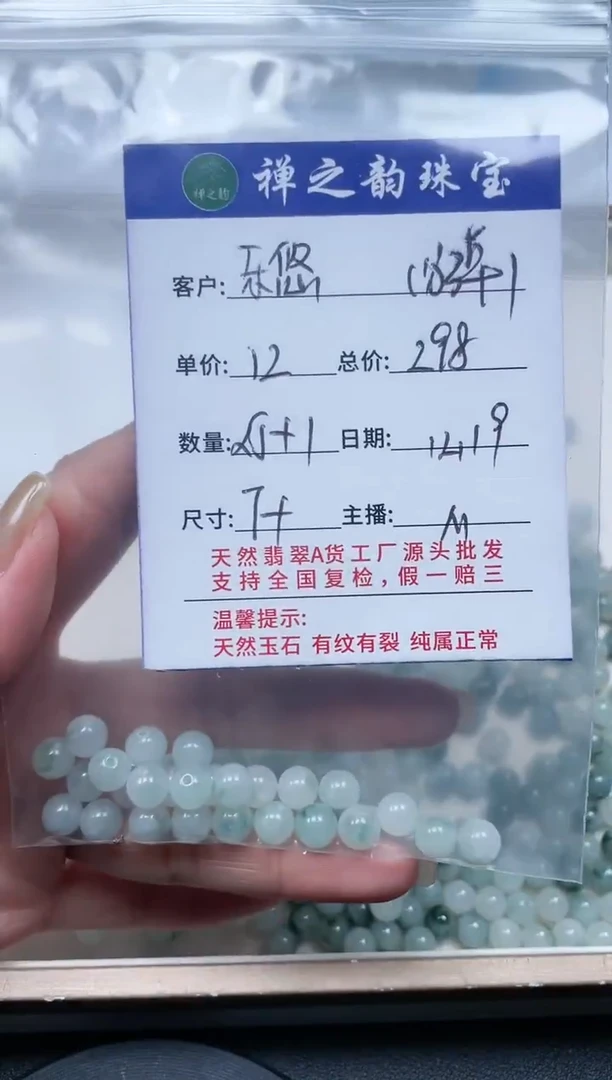 禅之韵 禅之韵珠宝
客户: 乐悠
单价: 12 总价: 298
数量: +1 日期:
尺寸: 7+ 主播: M
天然翡翠A货工厂源头批发
支持全国复检,假一赔三
温馨提示:
天然玉石 有纹有裂 纯属正常